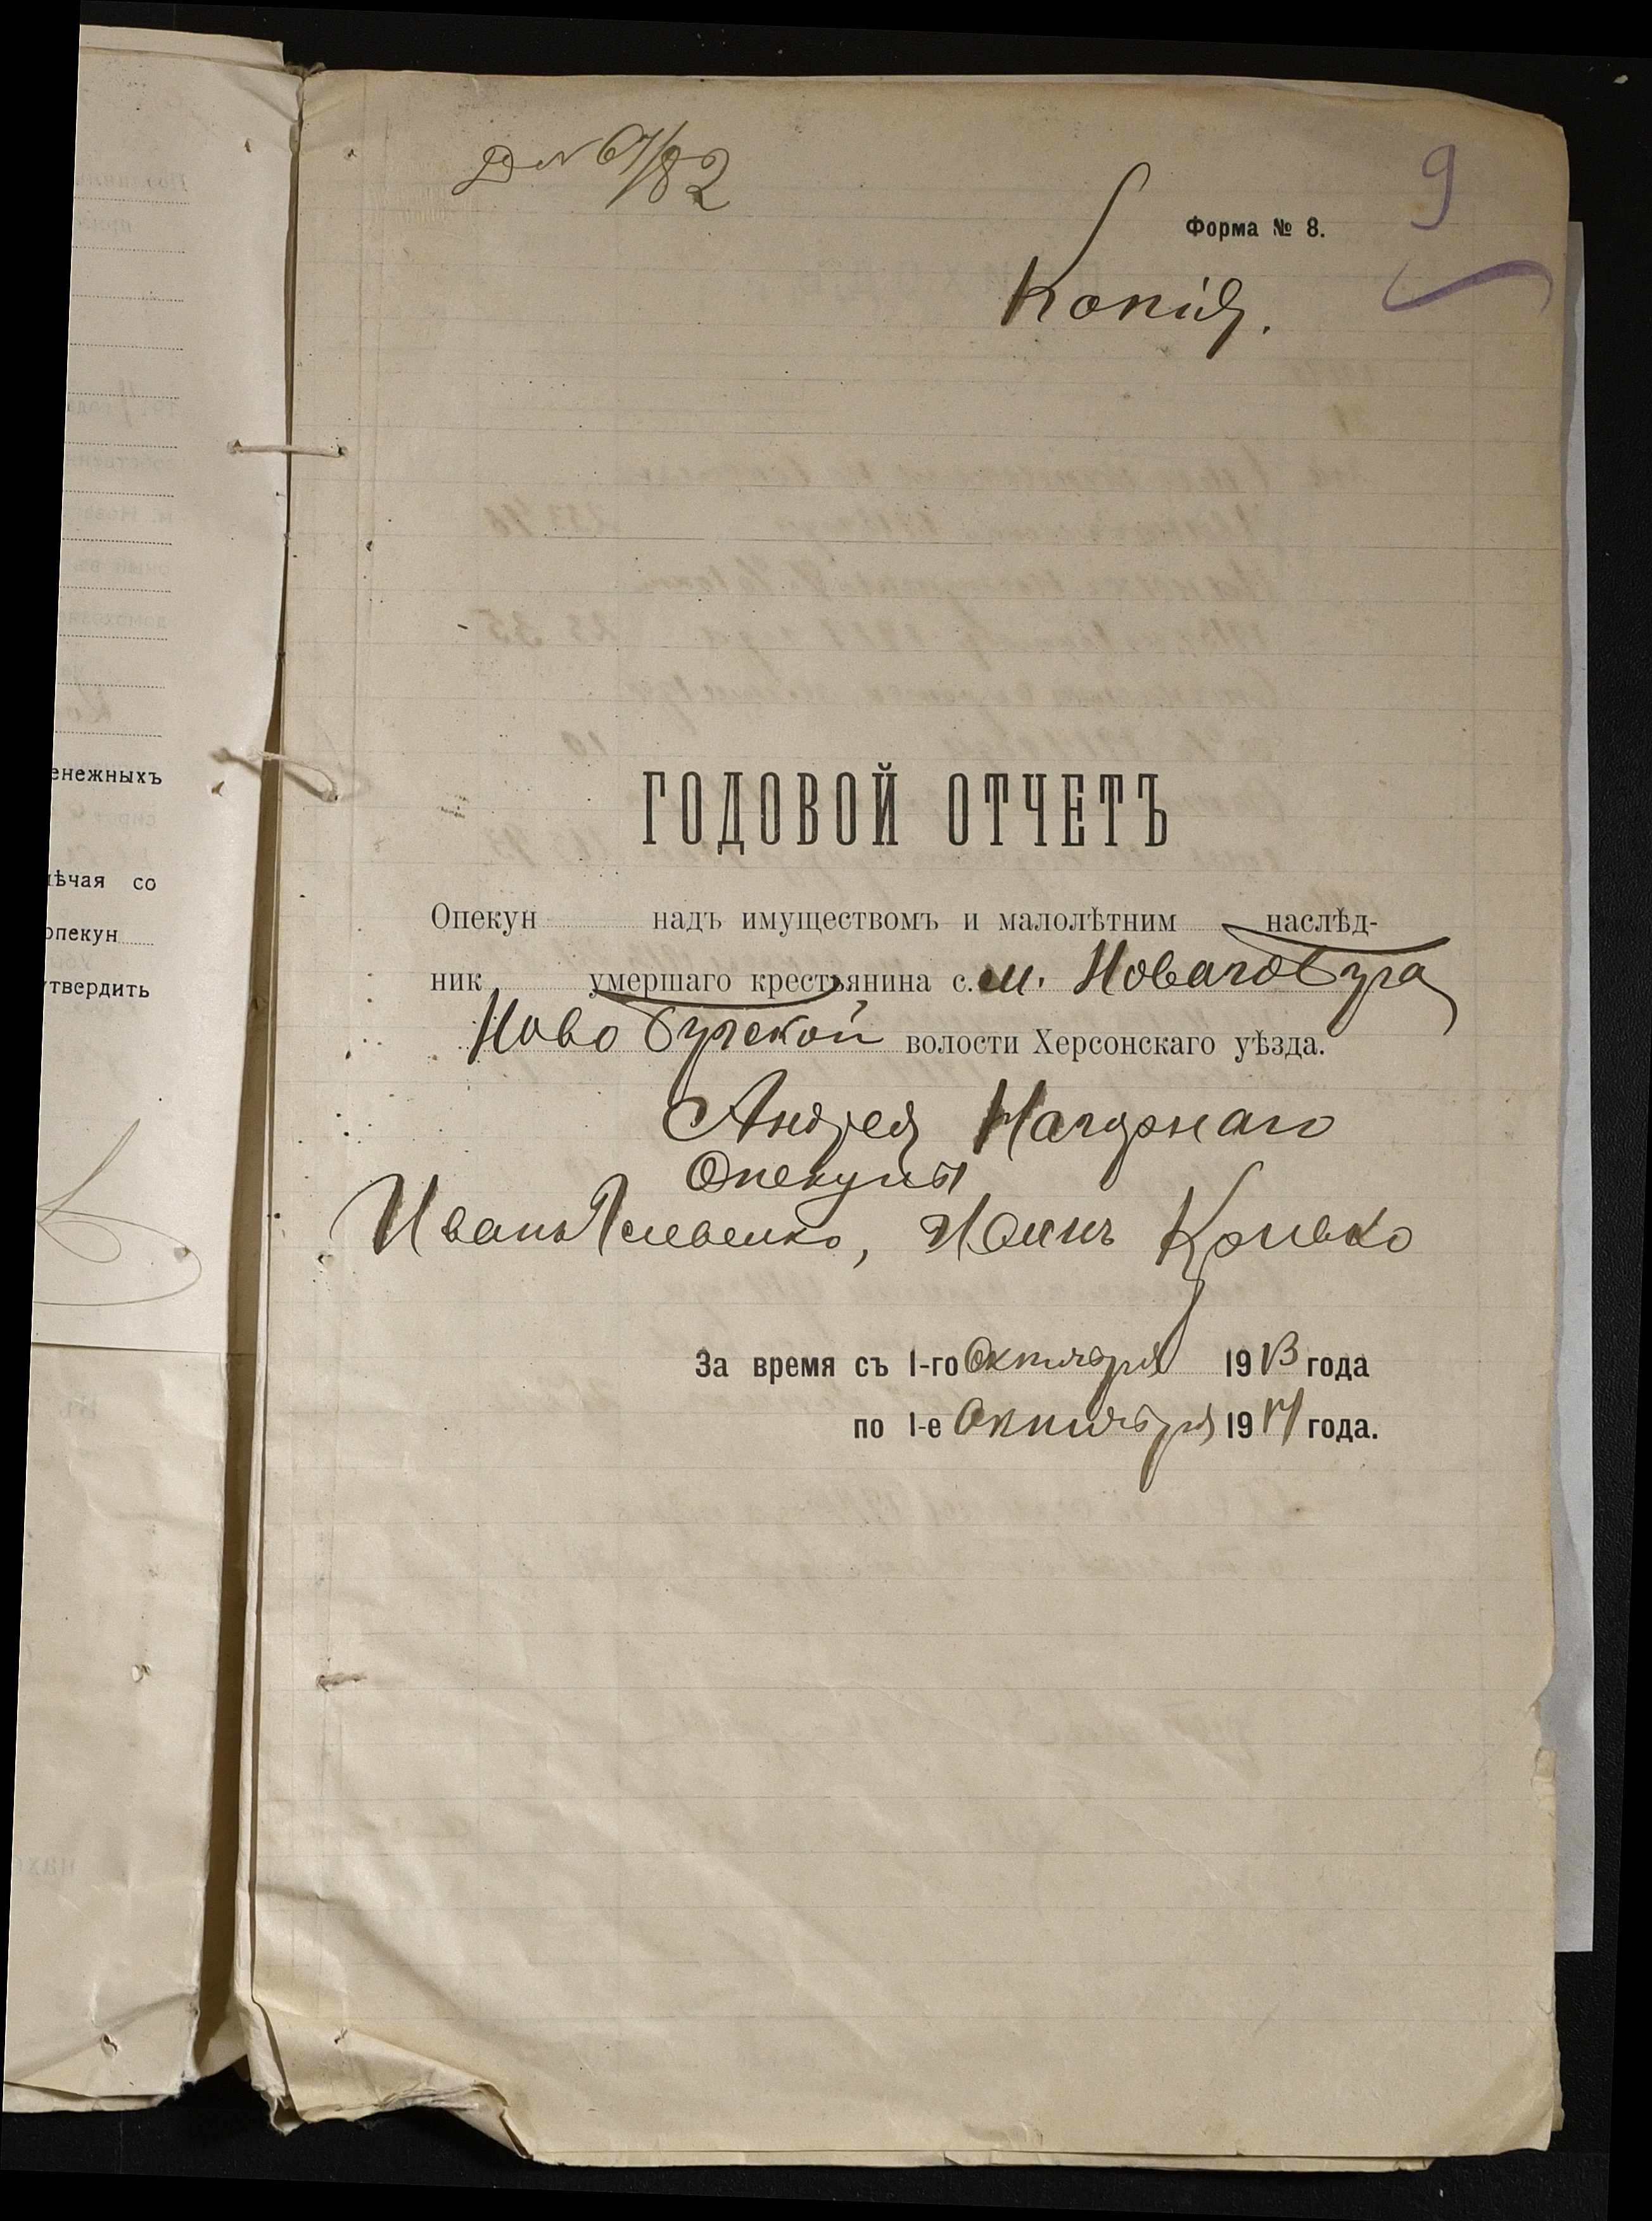 Д № 67/82
9
Форма № 8.
Копія.
ГОДОВОЙ ОТЧЕТЪ
Опекун надъ имуществомъ и малолѣтним наслѣд-
ник умершаго крестьянина с. м. Новаго Буга
Ново Бугской волости Херсонскаго уѣзда.
Андрея Нагорнаго
Опекуны
Иванъ, Кривко
За время съ 1-го Октября 1913 года
по 1-е Октября 1914 года.
енежныхъ
ѣчая со
опекун
утвердить